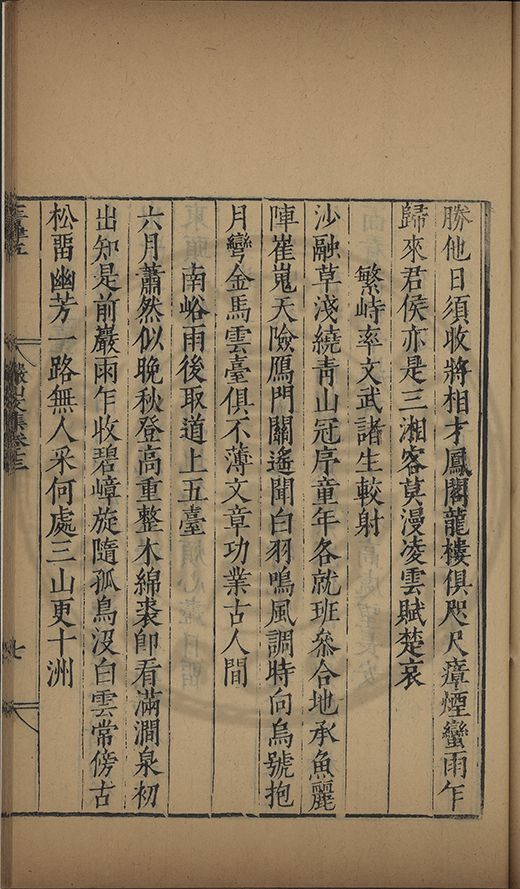 勝他日須收將相才鳳閣龍樓俱咫尺瘴煙蠻雨乍
歸來君侯亦是三湘客莫漫凌雲賦楚哀
繁峙率文武諸生較射
沙融草淺繞青山冠序童年各就班叅合地承魚麗
陣崔嵬天險鴈門關遙聞白羽鳴風調時向烏號抱
月彎金馬雲臺俱不薄文章功業古人間
南峪雨後取道上五臺
六月蕭然似晚秋登高重整木綿裘卽看滿澗泉初
出知是前巖雨乍收碧嶂旋隨孤鳥沒白雲常傍古
松畱幽芳一路無人采何處三山更十洲
七